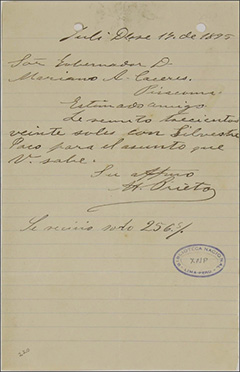 Juli Dbre 17. de 1895
Sor. Gobernador D.
Mariano A. Caceres.
Pisacoma
Estimado amigo.
Le remito trecientos
veinte soles con Silvestre
Paco para el asunto que
V. sabe.
Su affmo
M. Prieto
Se recivio solo 256 s/.
BIBLIOTECA NACIONAL
LIMA-PERU